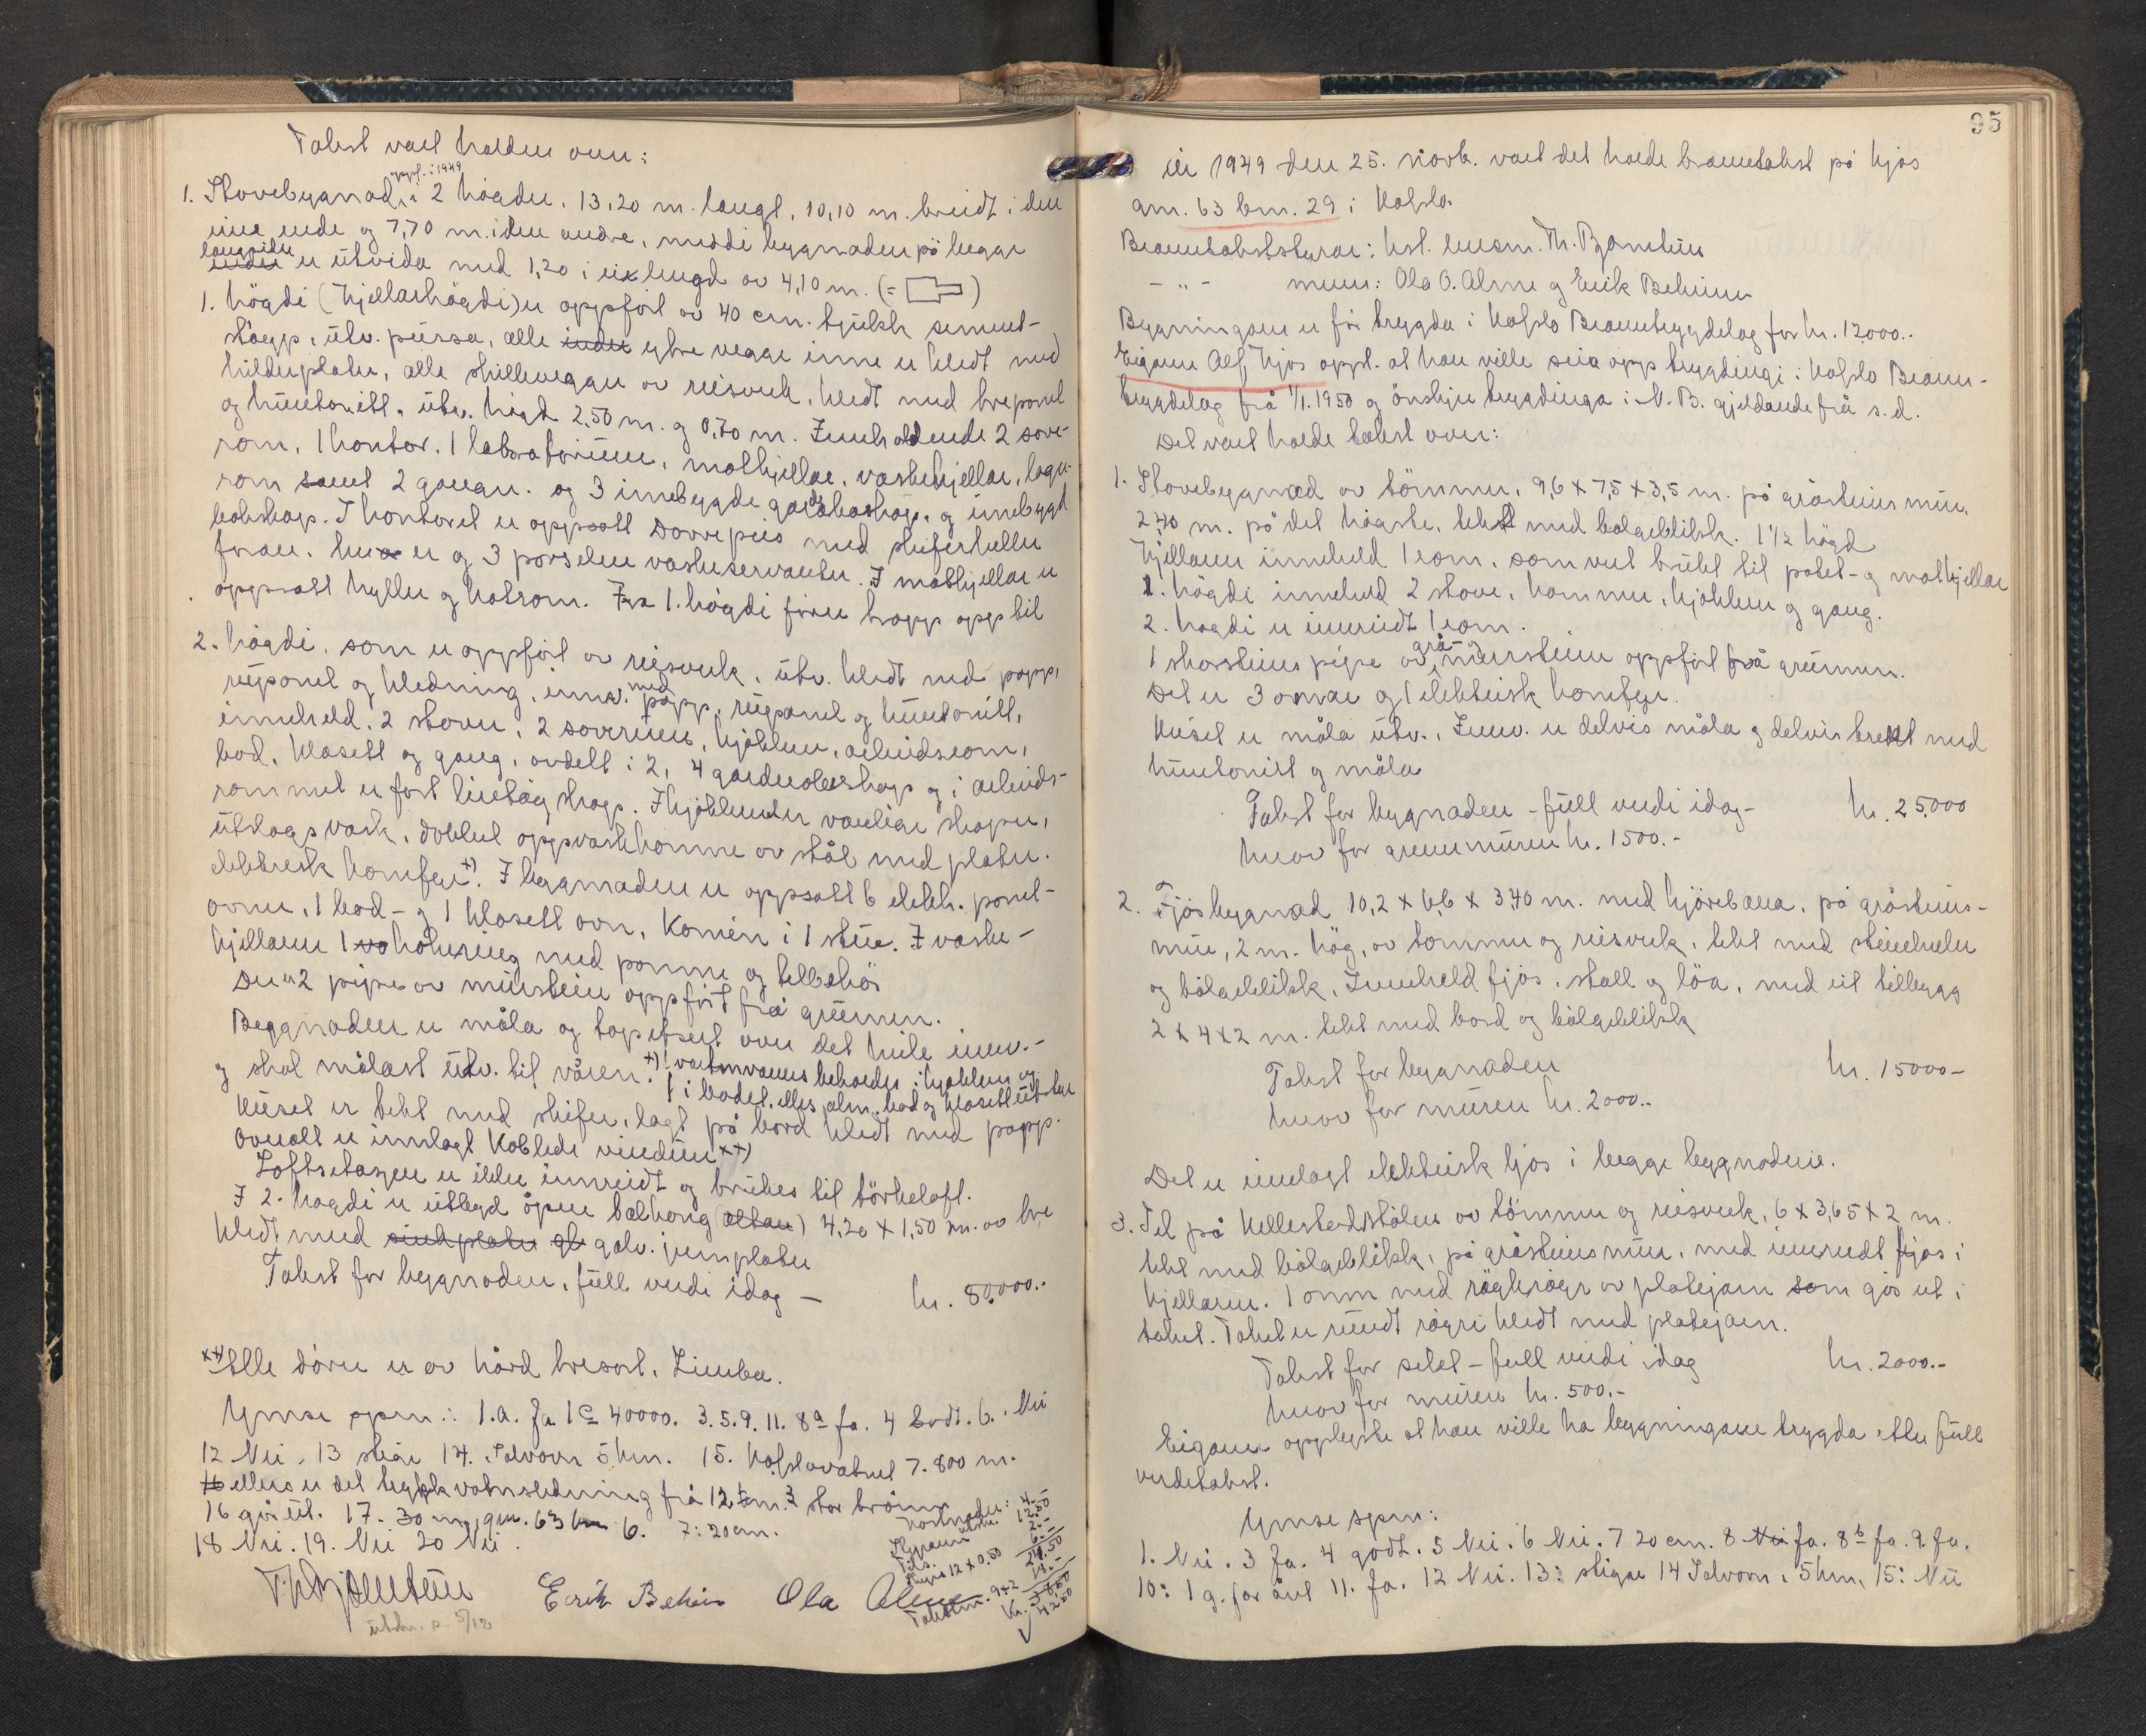 Takst vart halden over:
oppf. i 1949
1. Stovebygnad, i 2 högder, 13,20 m. langt, 10,10 m. breidt i den
eine ende og 7,70 m. i den andre, midti bygnaden på begge
langsider er utvida med 1,20 i ei lengd av 4,10 m. (= )
1. högdi (kjellarhögdi) er oppfört av 40 cm. tjukk sement-
støyp, utv. pussa, alle ytre vegge inne er kledt med
hilderplater, alle skilleveggar av reisverk, kledt med trepanel
og huntonitt, utv. högd 2,50 m. og 0,70 m. Innehaldende 2 sove-
rom, 1 kontor, 1 laboratorium, matkjellar, vaskekjellar, lagr-
rom samt 2 ganger. og 3 innebygde garderobeskap, og innebygt
kokskap. I kontoret er oppsatt Dovrepeis med skiferhelle
foran. her er og 3 porselen vaskeservanter. I matkjellar er
oppsatt hyller og kolrom. Frå 1. högdi förer trapp opp til
2. högdi, som er oppfört av reisverk, utv. kledt med papp,
rupanel og kledning, innv. med papp, rupanel og huntonitt,
inneheld. 2 stover, 2 soverum, kjökken, arbeidsrom,
bad, klosett og gang, avdelt i 2, 4 garderobeskap og i arbeids-
rommet er fast linetöyskap. I kjökkenet er vanlige skaper,
utslagsvask, dobbel oppvaskkomme av stål med plater.
elektrisk komfyr +). I bygnaden er oppsatt 6 elektr. panel-
ovner, 1 bad- og 1 klosett ovn, Kamin i 1 stue. I vaske-
kjellaren 1 kokering med panne og tilbehör
Der er 2 piper av murstein oppfört frå grunnen.
Bygnaden er måla og tapetsert over det heile innv.-
og skal målast utv. til våren. +) 1 varmvannsbeholder i kjökken og
1 i badet, elles alm. bad og klosettutstyr
Huset er tekt med skifer, lagt på bord kledt med papp.
Overalt er innlagt Koblede vinduer xx)
Loftsetasjen er ikke innreidt og brukes til törkeloft.
I 2. högdi er utbygd åpen balkong (altan) 4,20 x 1,50 m. av tre
kledt med sinkplater gl galv. jernplater
Takst for bygnaden, full verdi idag — kr. 80,000.-
xx) Alle dörer er av hård tresort, Limba.
Ymse spm.: 1.a. Ja 1c 40000. 3.5.9.11. 8a ja. 4 Godt. 6. Nei
12 Nei, 13 stige 14. Solvorn 5 km. 15. Hafslovatnet 7. 800 m.
16 elles er det lagt vatnledning frå 12 stor brönn
16 går ut. 17. 30 m. gnr. 63 bnr 6. 7: 20 cm.
18 Nei. 19. Nei 20 Nei.
Th Bjørnstein Erik Beheim Ola Alme
utskr. s. 5/12
95
År 1949 den 25. novb. vart det halde branntakst på kjos
gnr. 63 bnr. 29 i Hafslo.
Branntakststyrar: kst. lensm. Th. Bjørnstein
- " - menn: Ola O. Alme og Erik Beheim
Bygningane er för trygda i Hafslo Branntrygdelag for kr. 12000..
Eigaren Alf Kjos oppl. at han ville seia opp trygdingi i Hafslo Brann-
trygdelag frå 1/1.1950 og önskjer trygdinga i N.B. gjeldande frå s.d.
Det vart halde takst over:
1. Stovebygnad av tömmer, 9,6 x 7,5 x 3,5 m. på gråsteins mur,
2,40 m. på det högste, tekt med bölgeblikk. 1½ högd
Kjellaren inneheld 1 rom, som vert brukt til potet- og matkjellar
1. högdi inneheld 2 stover, kammer, kjökken og gang.
2. högdi er innreidt 1 rom.
1 skorsteins pipe av grå- og murstein oppfört frå grunnen.
Det er 3 omnar og 1 elektrisk komfyr.
Huset er måla utv.. Innv. er delvis måla og delvis trekt med
huntonitt og måla
Takst for bygnaden - full verdi idag - kr. 25.000
herav for grunnmuren kr. 1500.-
2. Fjösbygnad 10,2 x 6,6 x 3,40 m. med kjörebana, på gråsteins-
mur, 2 m. hög, av tömmer og reisverk, tekt med steinheller
og bölgeblikk, Inneheld fjös, stall og löa, med eit tillegg
2 x 4 x 2 m. tekt med bord og bölgeblikk
Takst for bygnaden kr. 15000-
herav for muren kr. 2000..
Det er innlagt elektrisk ljos i begge bygnadene.
3. Sel på Hellestadstölen av tömmer og reisverk, 6 x 3,65 x 2 m.
tekt med bölgeblikk, på gråsteins mur, med innreidt fjös i
kjellaren. 1 omn med röykröyr av platejarn som går ut i
taket. Taket er rundt röyri kledt med platejarn.
Takst for selet - full verdi idag kr. 2000.-
herav for muren kr. 500.-
Eigaren opplyste at han ville ha bygningane trygda etter full
verdetakst.
Ymse spm:
1. Nei. 3 Ja. 4 godt. 5 Nei. 6 Nei. 7 20 cm. 8 Nei ja. 8b ja. 9. Ja.
10: 1 g. for året 11. Ja. 12 Nei. 13: stigar 14 Solvorn, 5 km, 15: Nei